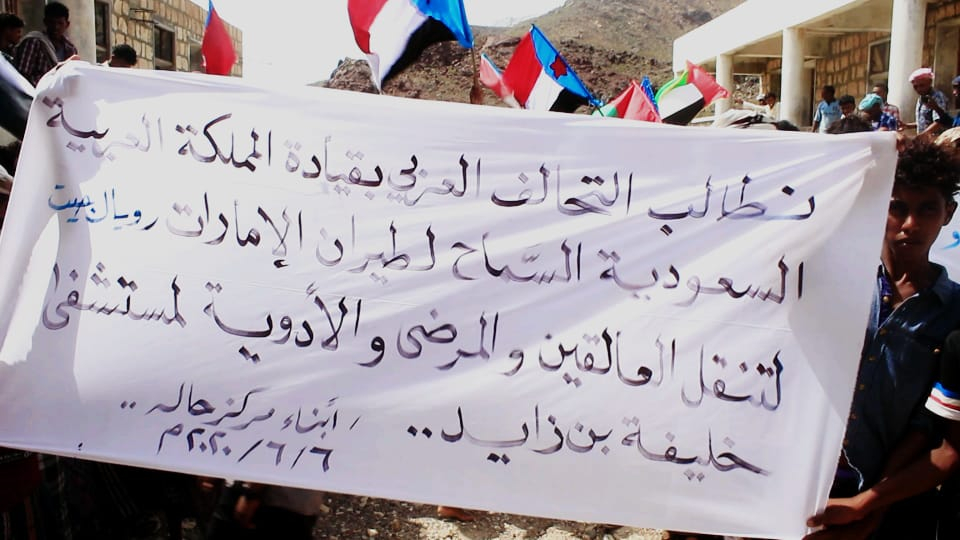 نطالب التحالف العربي بقيادة المملكة العربية
السعودية السَّماح لطيران الإمارات رويال جيت
لتنقل العالقين والمرضى والأدوية لمستشفى
خليفة بن زايد..
/ أبناء مركز حاله ..
٢٠٢٠/٦/٦م